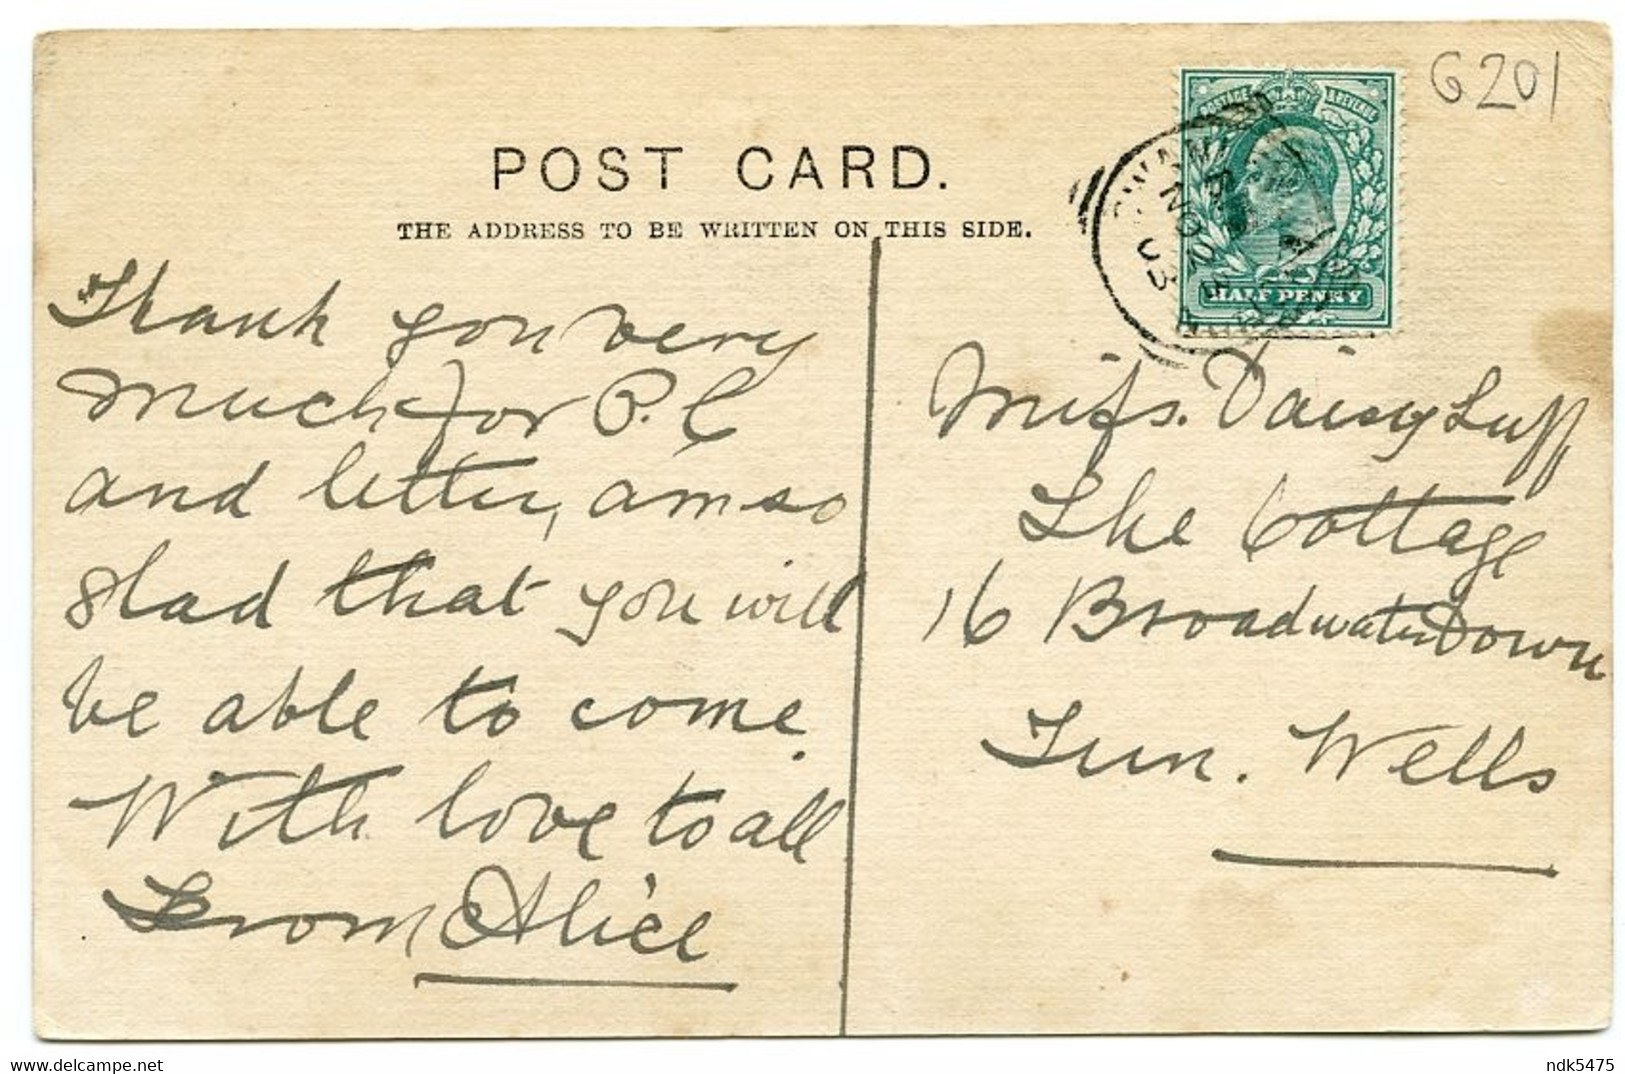 POST CARD.
THE ADDRESS TO BE WRITTEN ON THIS SIDE.
G201
POSTAGE & REVENUE
HALF PENNY
Thank you very
much for P.C
and letter, am so
glad that you will
be able to come.
With love to all
From Alice
Miss. Daisy Luff
The Cottage
16 Broadwater Down
Tun. Wells
www.delcampe.net
ndk5475